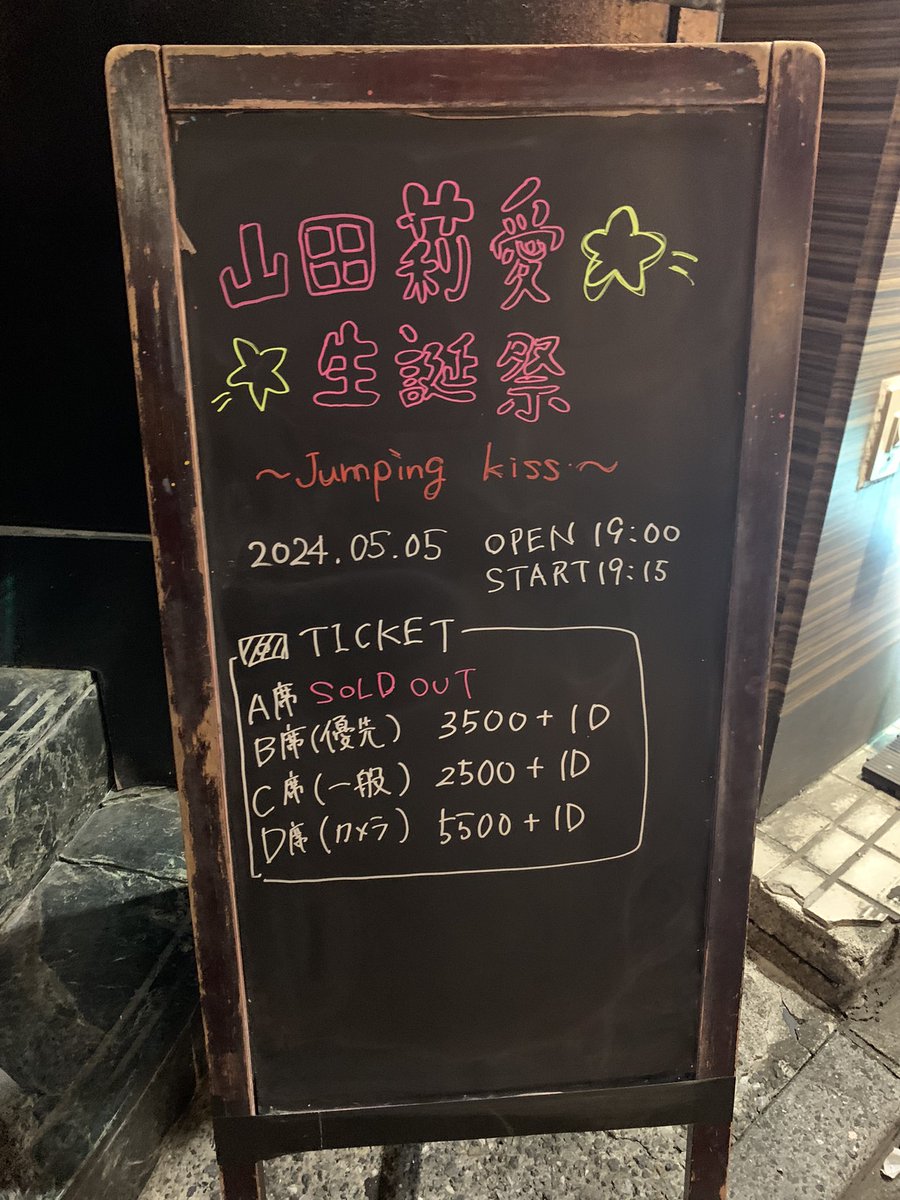 山田莉愛
生誕祭
～Jumping kiss～
2024.05.05 OPEN 19:00
START 19:15
TICKET
A席 SOLD OUT
B席(優先) 3500+1D
C席(一般) 2500+1D
D席(カメラ) 5500+1D